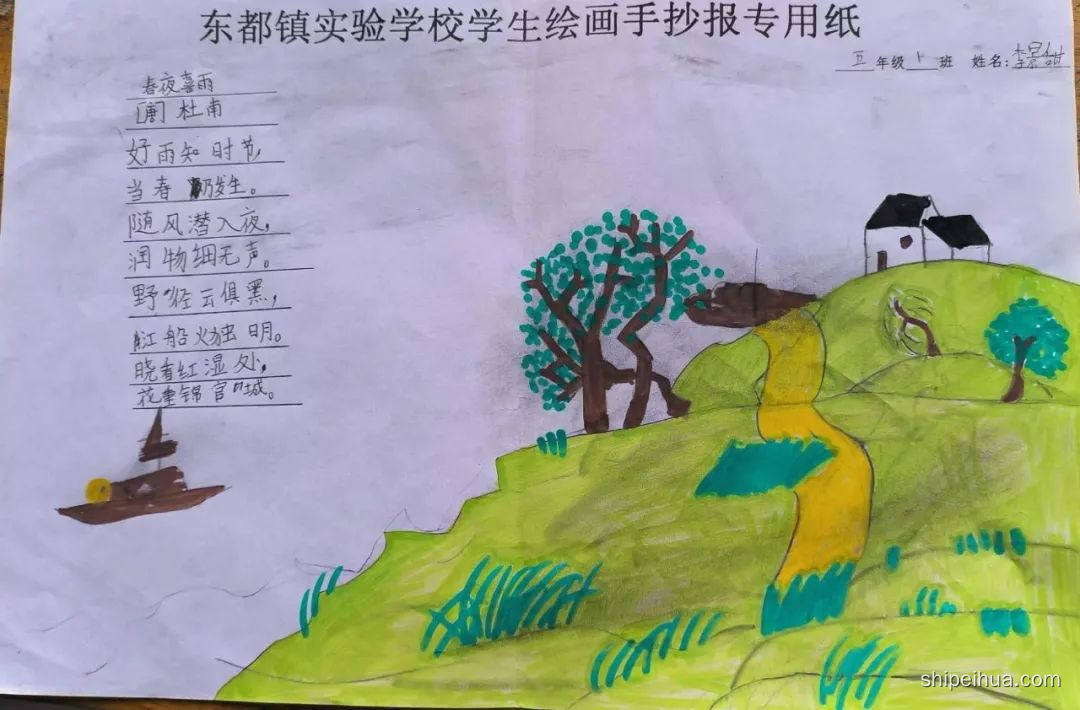 东都镇实验学校学生绘画手抄报专用纸
五年级1班 姓名:李景甜
春夜喜雨
[唐] 杜甫
好雨知时节,
当春乃发生。
随风潜入夜,
润物细无声。
野径云俱黑,
江船火独明。
晓看红湿处,
花重锦官城。
shipeihua.com